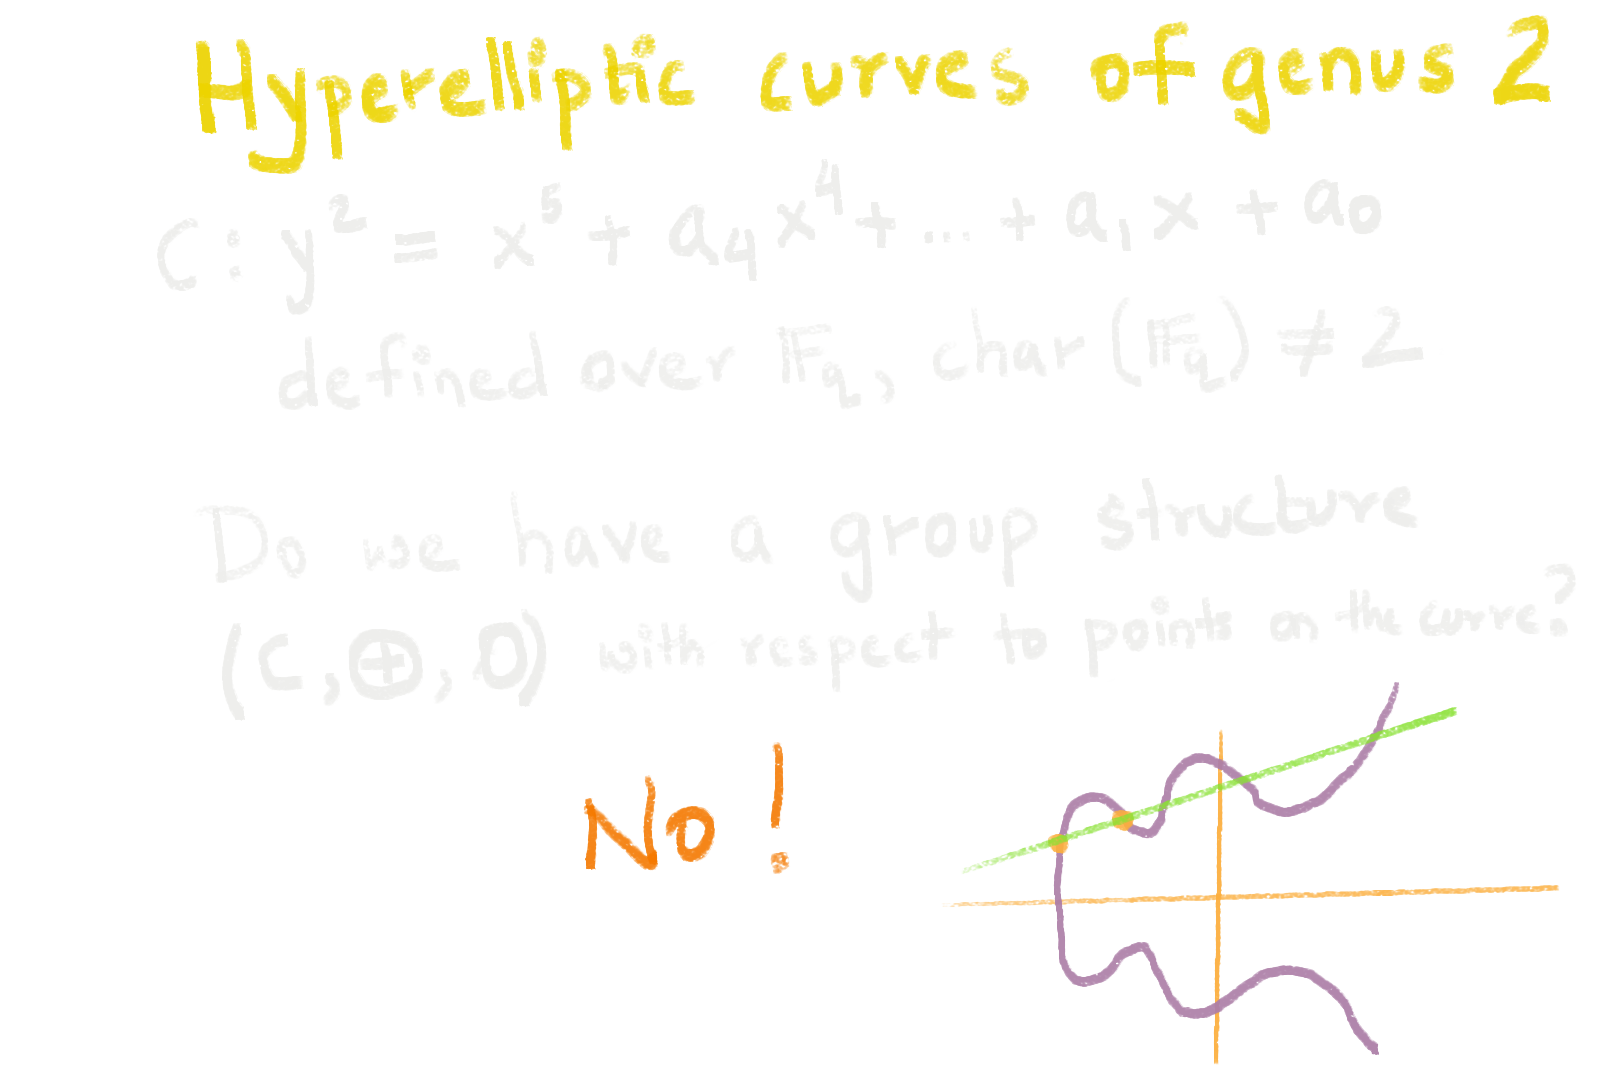 Hyperelliptic curves of genus 2
C: y² = x⁵ + a₄x⁴ + ... + a₁x + a₀
defined over 𝔽q, char(𝔽q) ≠ 2
Do we have a group structure
(C, ⊕, O) with respect to points on the curve?
No!